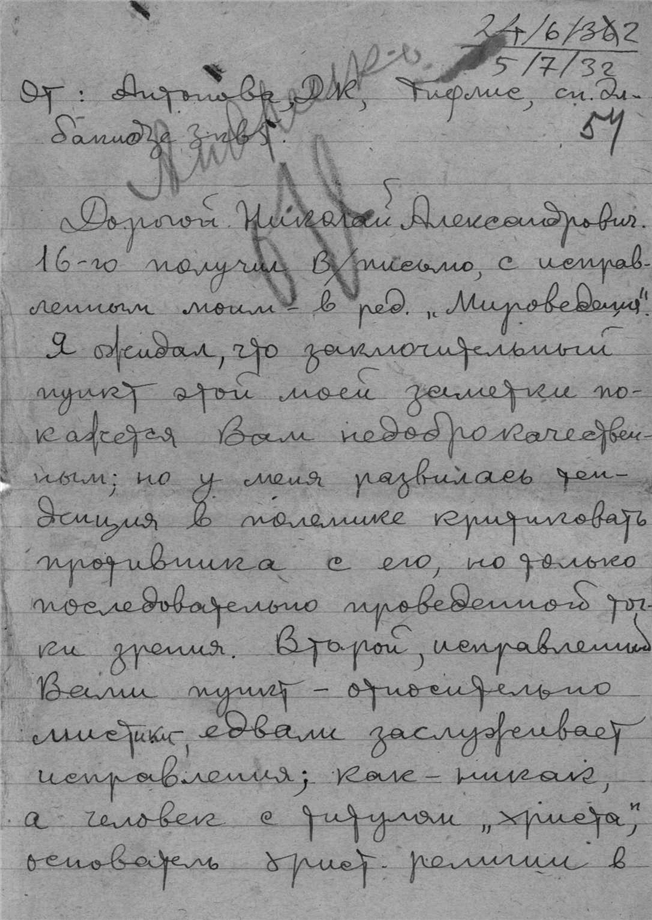 24/6/32
5/7/32
54
От: Антонова, ДК, Тифлис, сп. Эл-
бакидзе 3 кв 5.
Дорогой Николай Александрович.
16-го получил В/письмо, с исправ-
ленным моим – в ред. „Мироведения".
Я ожидал, что заключительный
пункт этой моей заметки по-
кажется Вам недоброкачествен-
ным; но у меня развилась тен-
денция в полемике критиковать
противника с его, но только
последовательно проведенной точ-
ки зрения. Второй, исправленный
Вами пункт – относительно
мистики, едвали заслуживает
исправления; как-никак,
а человек с титулом „христа",
основатель христ. религии в